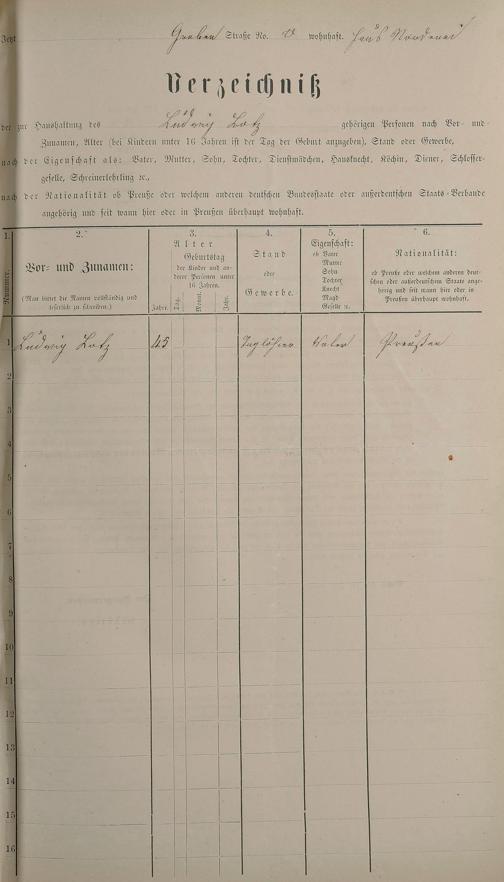 Jetzt Graben Straße No. 0 wohnhaft. Haus Nordenei
Verzeichniß
der zur Haushaltung des Ludwig Lotz gehörigen Personen nach Vor- und
Zunamen, Alter (bei Kindern unter 16 Jahren ist der Tag der Geburt anzugeben), Stand oder Gewerbe,
nach der Eigenschaft als: Vater, Mutter, Sohn, Tochter, Dienstmädchen, Hausknecht, Köchin, Diener, Schlosser-
geselle, Schreinerlehrling ꝛc.,
nach der Nationalität ob Preuße oder welchem anderen deutschen Bundesstaate oder außerdeutschen Staats-Verbande
angehörig und seit wann hier oder in Preußen überhaupt wohnhaft.
1. 2. 3. 4. 5. 6.
Nummer.
Vor- und Zunamen:
(Man bittet die Namen vollständig und
leserlich zu schreiben.)
Alter
Geburtstag
der Kinder und an-
derer Personen unter
16 Jahren.
Jahre. Tag. Monat. Jahr.
Stand
oder
Gewerbe.
Eigenschaft:
ob Vater
Mutter
Sohn
Tochter
Knecht
Magd
Geselle ꝛc.
Nationalität:
ob Preuße oder welchem anderen deut-
schen oder außerdeutschen Staate ange-
hörig und seit wann hier oder in
Preußen überhaupt wohnhaft.
1 Ludwig Lotz 45 Taglöhner Vater Preußen
2
3
4
5
6
7
8
9
10
11
12
13
14
15
16